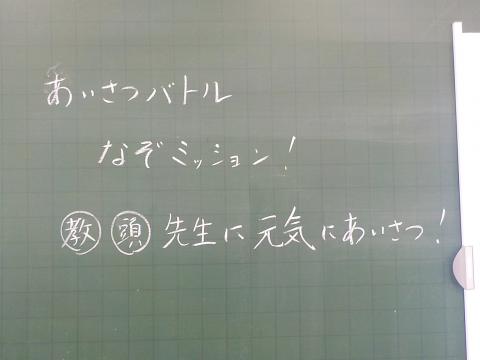 あいさつバトル
なぞミッション!
教頭先生に元気にあいさつ!